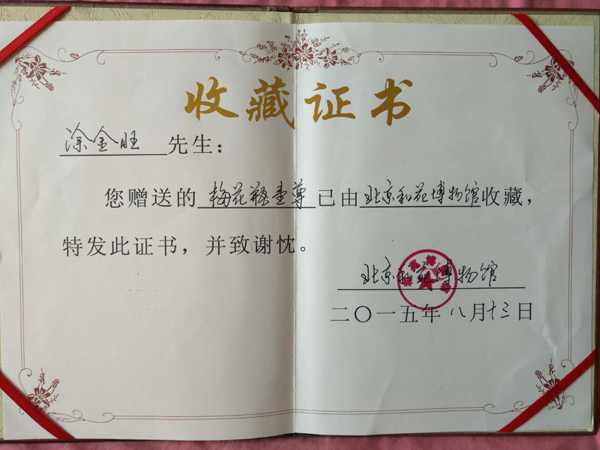 收藏证书
涂金旺 先生：
您赠送的 梅花瓶壹尊 已由 北京和苑博物馆 收藏，
特发此证书，并致谢忱。
北京和苑博物馆
二〇一五年八月十三日